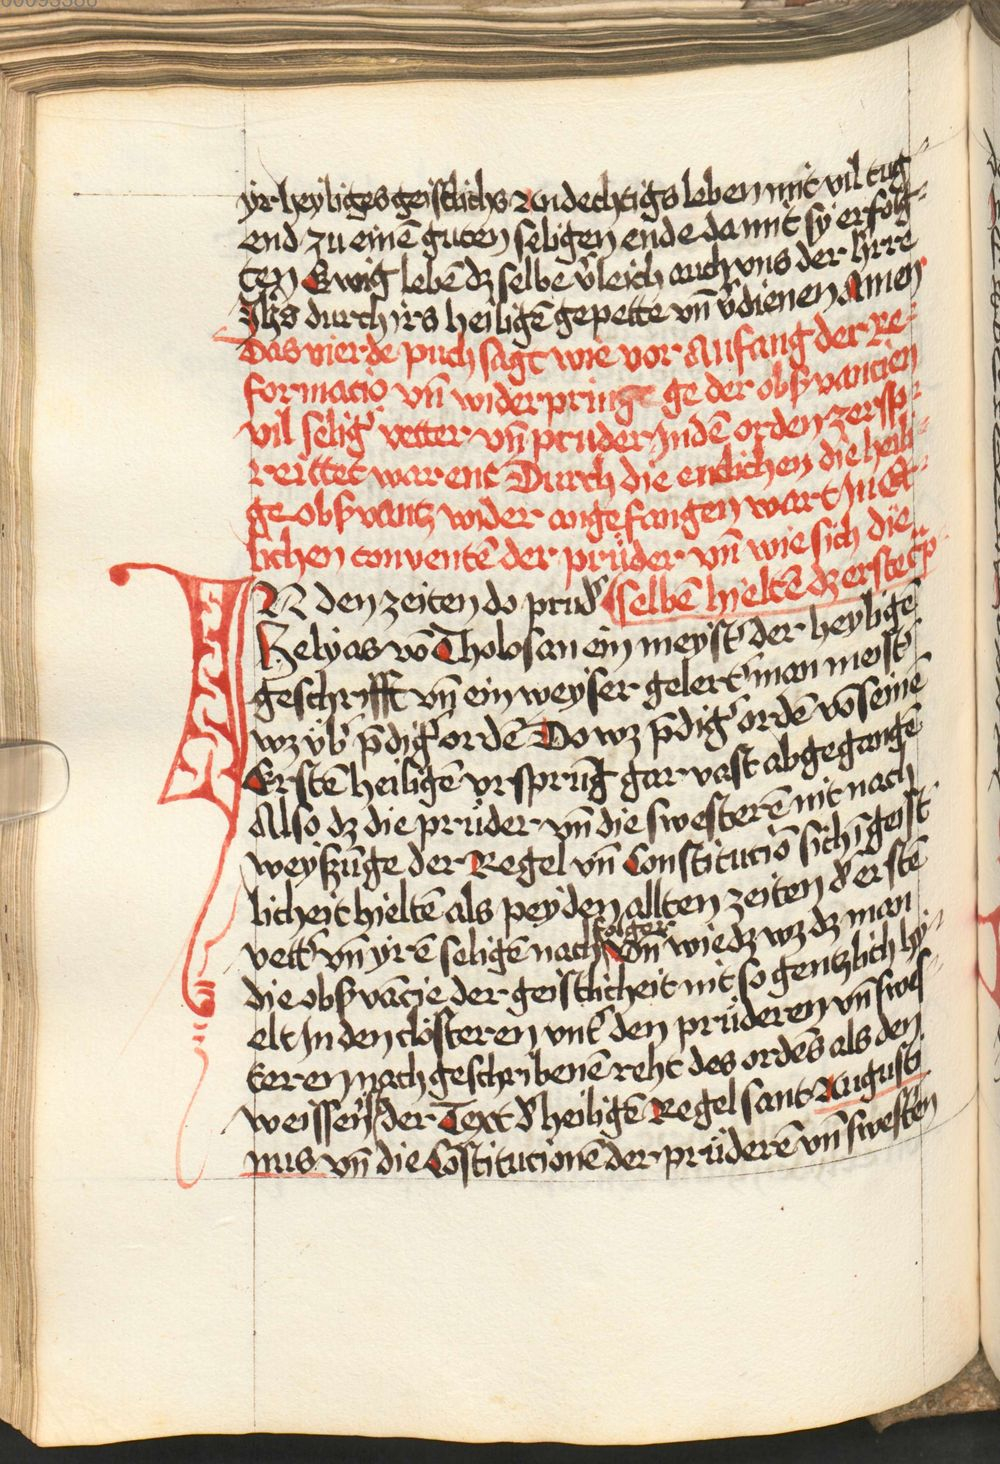 00093380
yr heyliges geistlichs Andechtigs leben mit vil tug
end zu einē guten seligen ende da mit sy erfolg
ten Ewig lebē dz selbe v̾leich auch vns der hrre
Jhs durch irs heiligē gepette vn̄ v̾dienen Amen
Das vierde puch sagt wie vor Anfang der Re
formacio vn̄ widerpringe ge der obs̾vancien
vil selig̾ vetter vn̄ pruder Indē orden zersp
reittet warent Durch die etlichen die heili
ge obs̾vantz wider angefangen wart In Et
lichen conventē der prüder vn̄ wie sich die
selbē hieltē dz erste cp
IN den zeiten do prud̾
Helyas vō Tholosan ein meyst̾ der heylige
geschrifft vn̄ ein weyser gelert̾ man meist̾
wz vb̾ p̄dig̾ ordē Do wz p̄dig̾ ordē vō seinē
Erstē heiligē vrsprūg gar vast abgegangē
Also dz die prüder vn̄ die swesterē nit nach
weyßūge der Regel vn̄ Constitucio͞ sich ī geist
licheit hieltē als pey den allten zeiten d̾ erstē
vett̾ vn̄ yrē seligē nach folger Vn̄ wie dz wz dz man
die obs̾vācie der geistlicheit nit so gentzlich hy
elt In den clösteren vnt̾ den prüderen vn̄ swes
teren nach geschribenē reht des ordēs als den
weissen ist der Text d̾ heiligē Regel sant Augusti
nus vn̄ die Cōstitucionē der prüderē vn̄ swesten